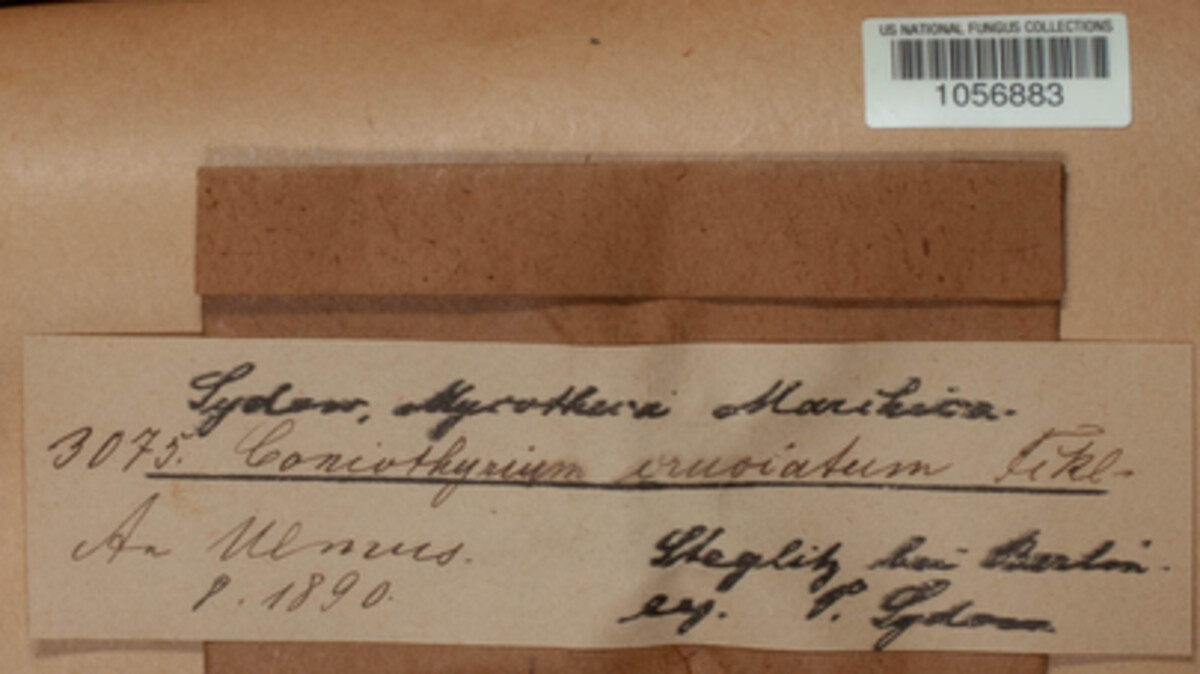 US NATIONAL FUNGUS COLLECTIONS
1056883
Sydow, Mycotheca Marchica.
3075. Coniothyrium cruciatum Fckl.
An Ulmus.
8. 1890.
Steglitz bei Berlin.
leg. P. Sydow.